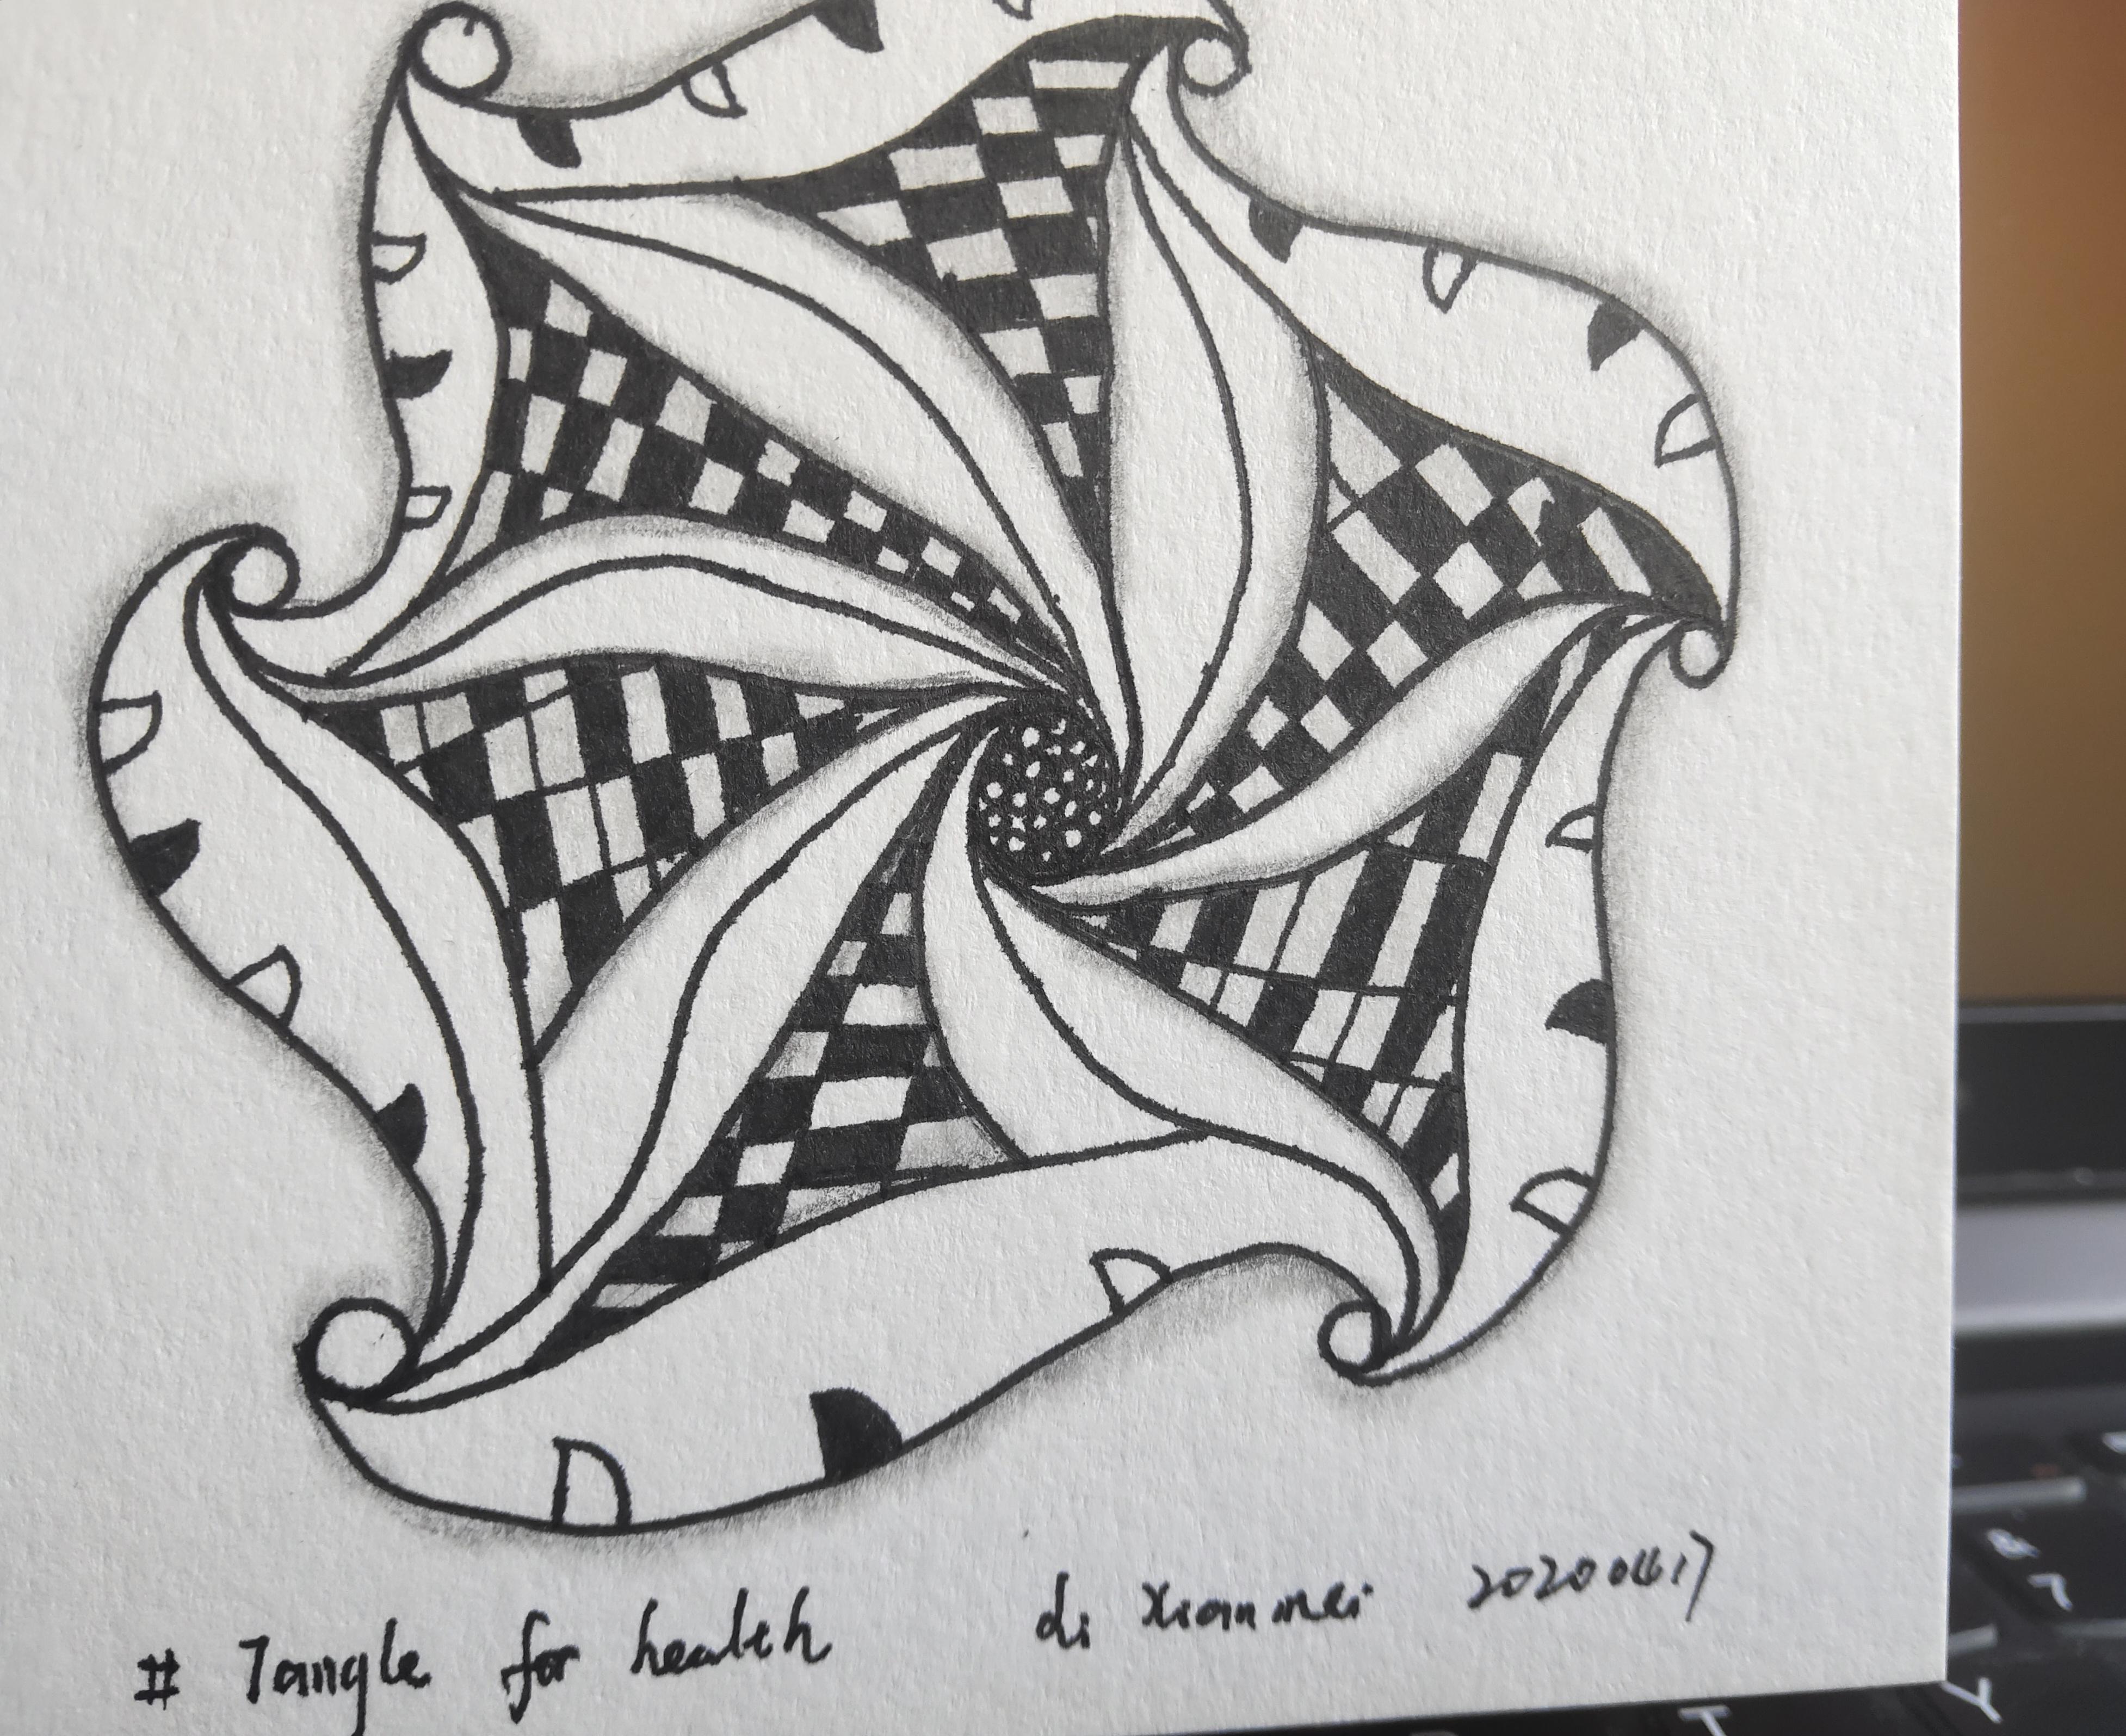 # Tangle for health di xianmei 20200417
&
7
T
Y